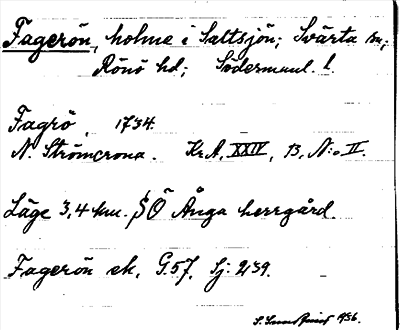 Fagerön, holme i Saltsjön; Svärta sn;
Rönö hd; Södermanl. l.
Fagrö, 1734.
N. Strömcrona. Kr.A, XXIV, 13, N:o II.
Läge 3,4 km. SÖ Ånga herrgård.
Fagerön ek. G.57. Sj: 239.
S. Sundquist 1936.